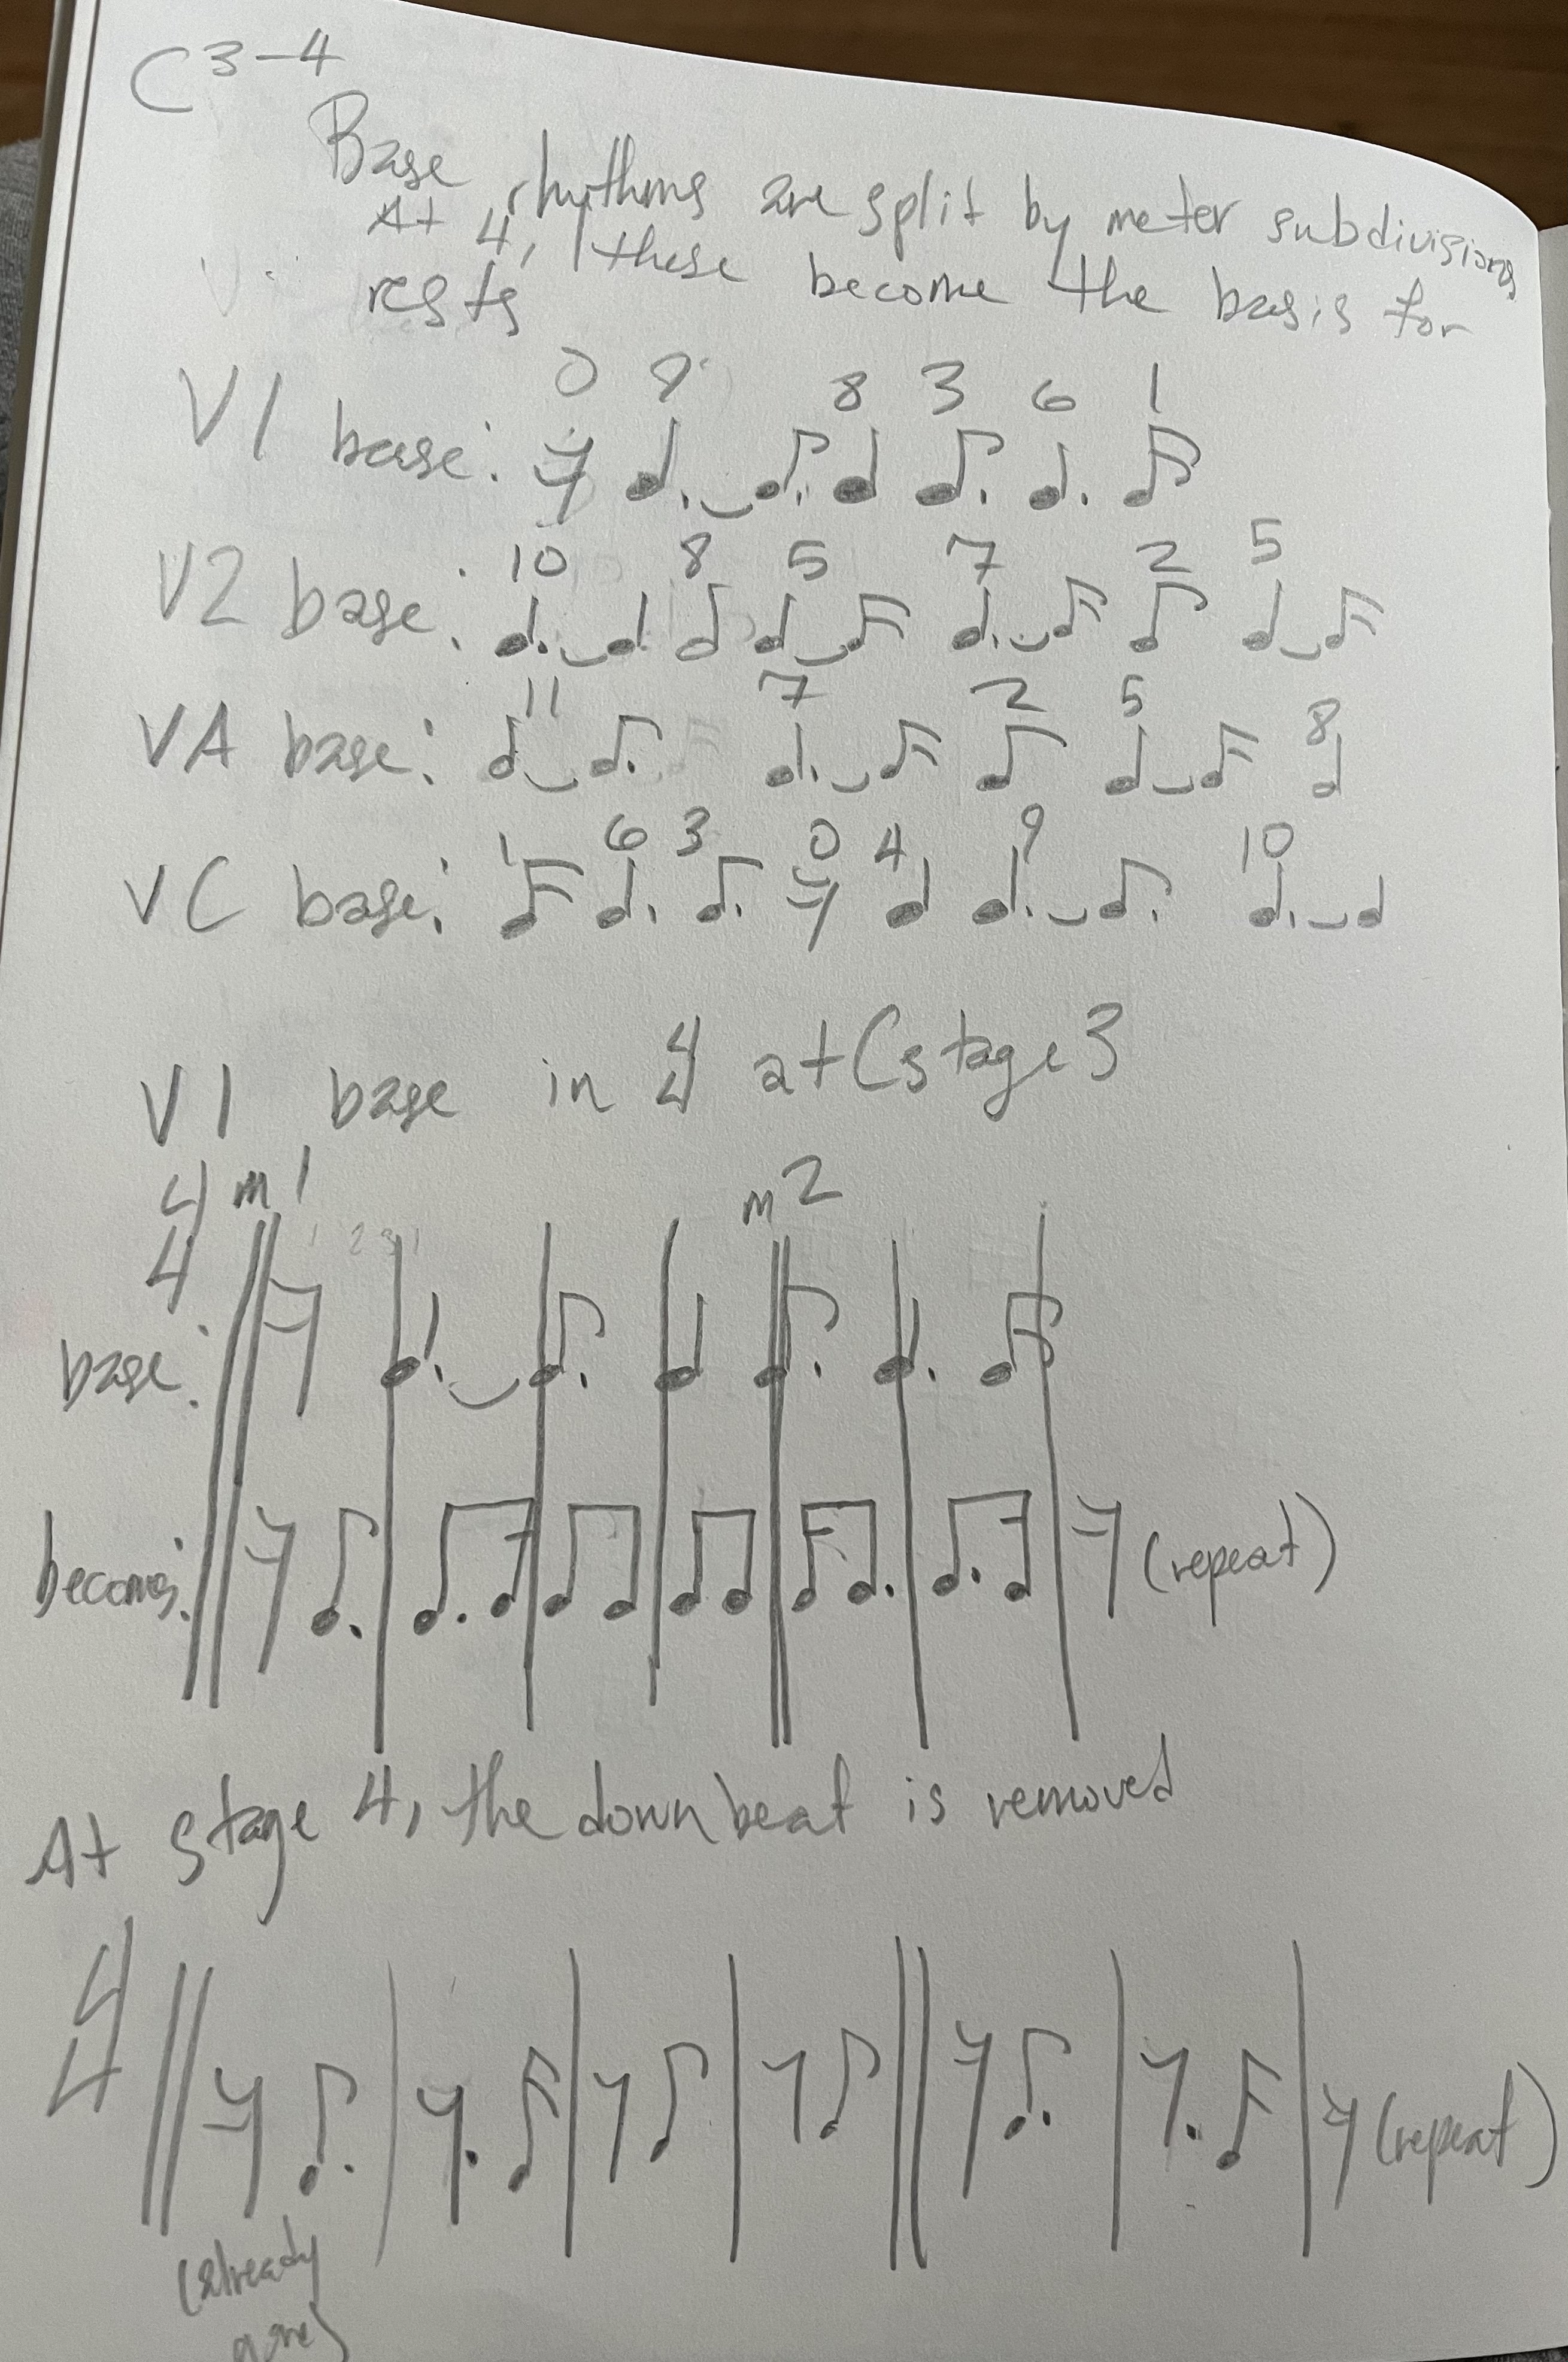 C 3-4
Base rhythms are split by meter subdivisions
At 4, these become the basis for
rests
0 9 8 3 6 1
V1 base:
10 8 5 7 2 5
V2 base:
11 7 2 5 8
VA base:
1 6 3 0 4 9 10
VC base:
V1 base in 4/4 at C stage 3
4/4 m1 m2
base:
becomes: (repeat)
At stage 4, the downbeat is removed
4/4 (repeat)
(already
gone)